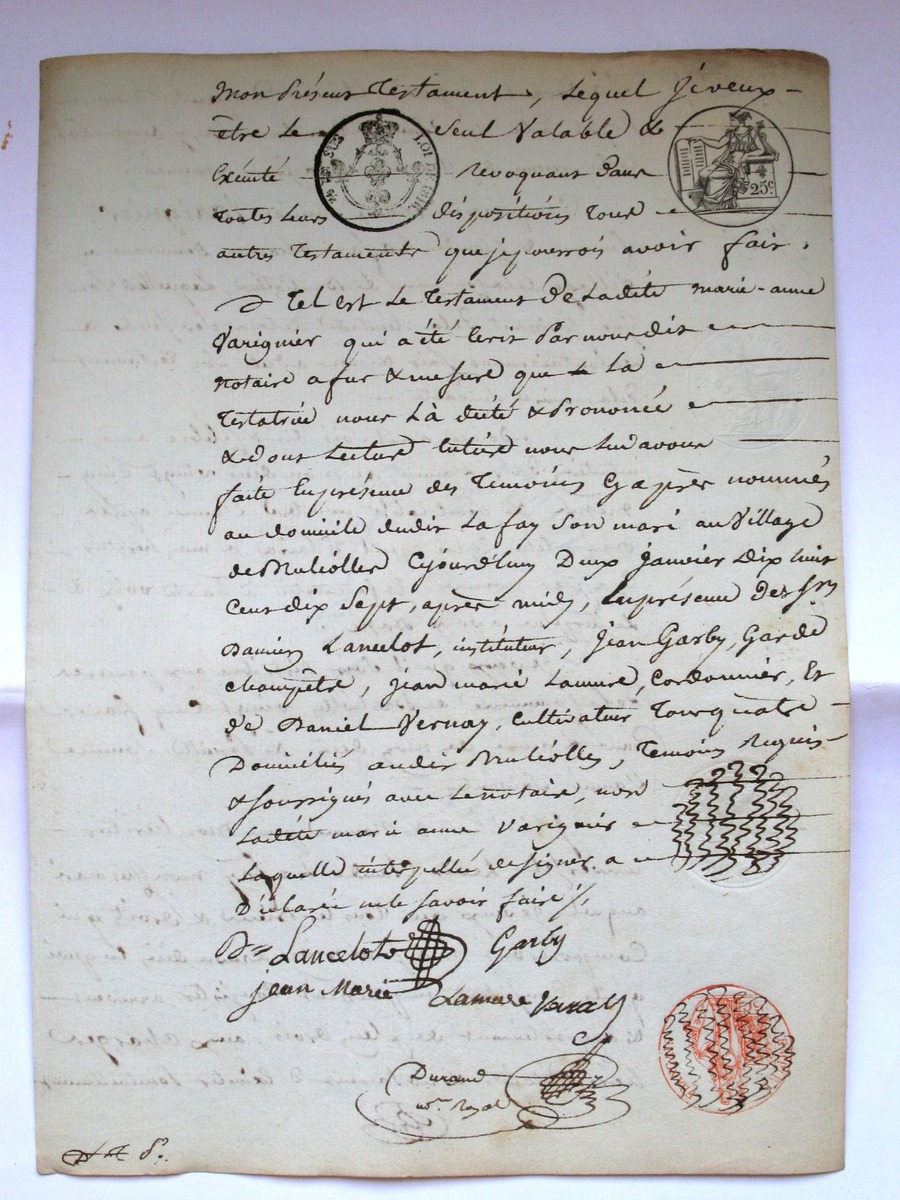 mon présent Testament, Lequel je veux
être Le seul Valable &
Exécuté revoquant dans
toutes leurs dispositions tous
autres Testaments que je pourrois avoir fait.
EN SUS
LOI DE 1816.
25 c.
Tel est Le Testament de Ladité marie-anne
Varignier qui a été Ecrit Par nous dit
notaire a fur & mesure que La
Testatrice nous L'à dicté & Prononcé
& dont Lecture Entière nous Lui avons
faite En présence des Temoins Cy après nommés
au domicile dudit Lafay Son mari au Village
de Bruliolles Cejourd'huy Deux janvier Dix huit
Cent dix Sept, après midy, En présence des Srs
Lancelot, instituteur, jean Garby, Garde
champêtre, jean marie Lamure, Cordonnier, Et
de Daniel Vernay, Cultivateur Tous quatre
Domiciliés audit Brulliolles, Temoins Requis
& Soussignés avec Le notaire, non
Ladité marie anne Varignier
Laquelle interpellé de signer a
Déclarée ne le savoir faire ./.
Lancelot Garby
jean Marie Lamure Vernay
Durand
Nre. Royal